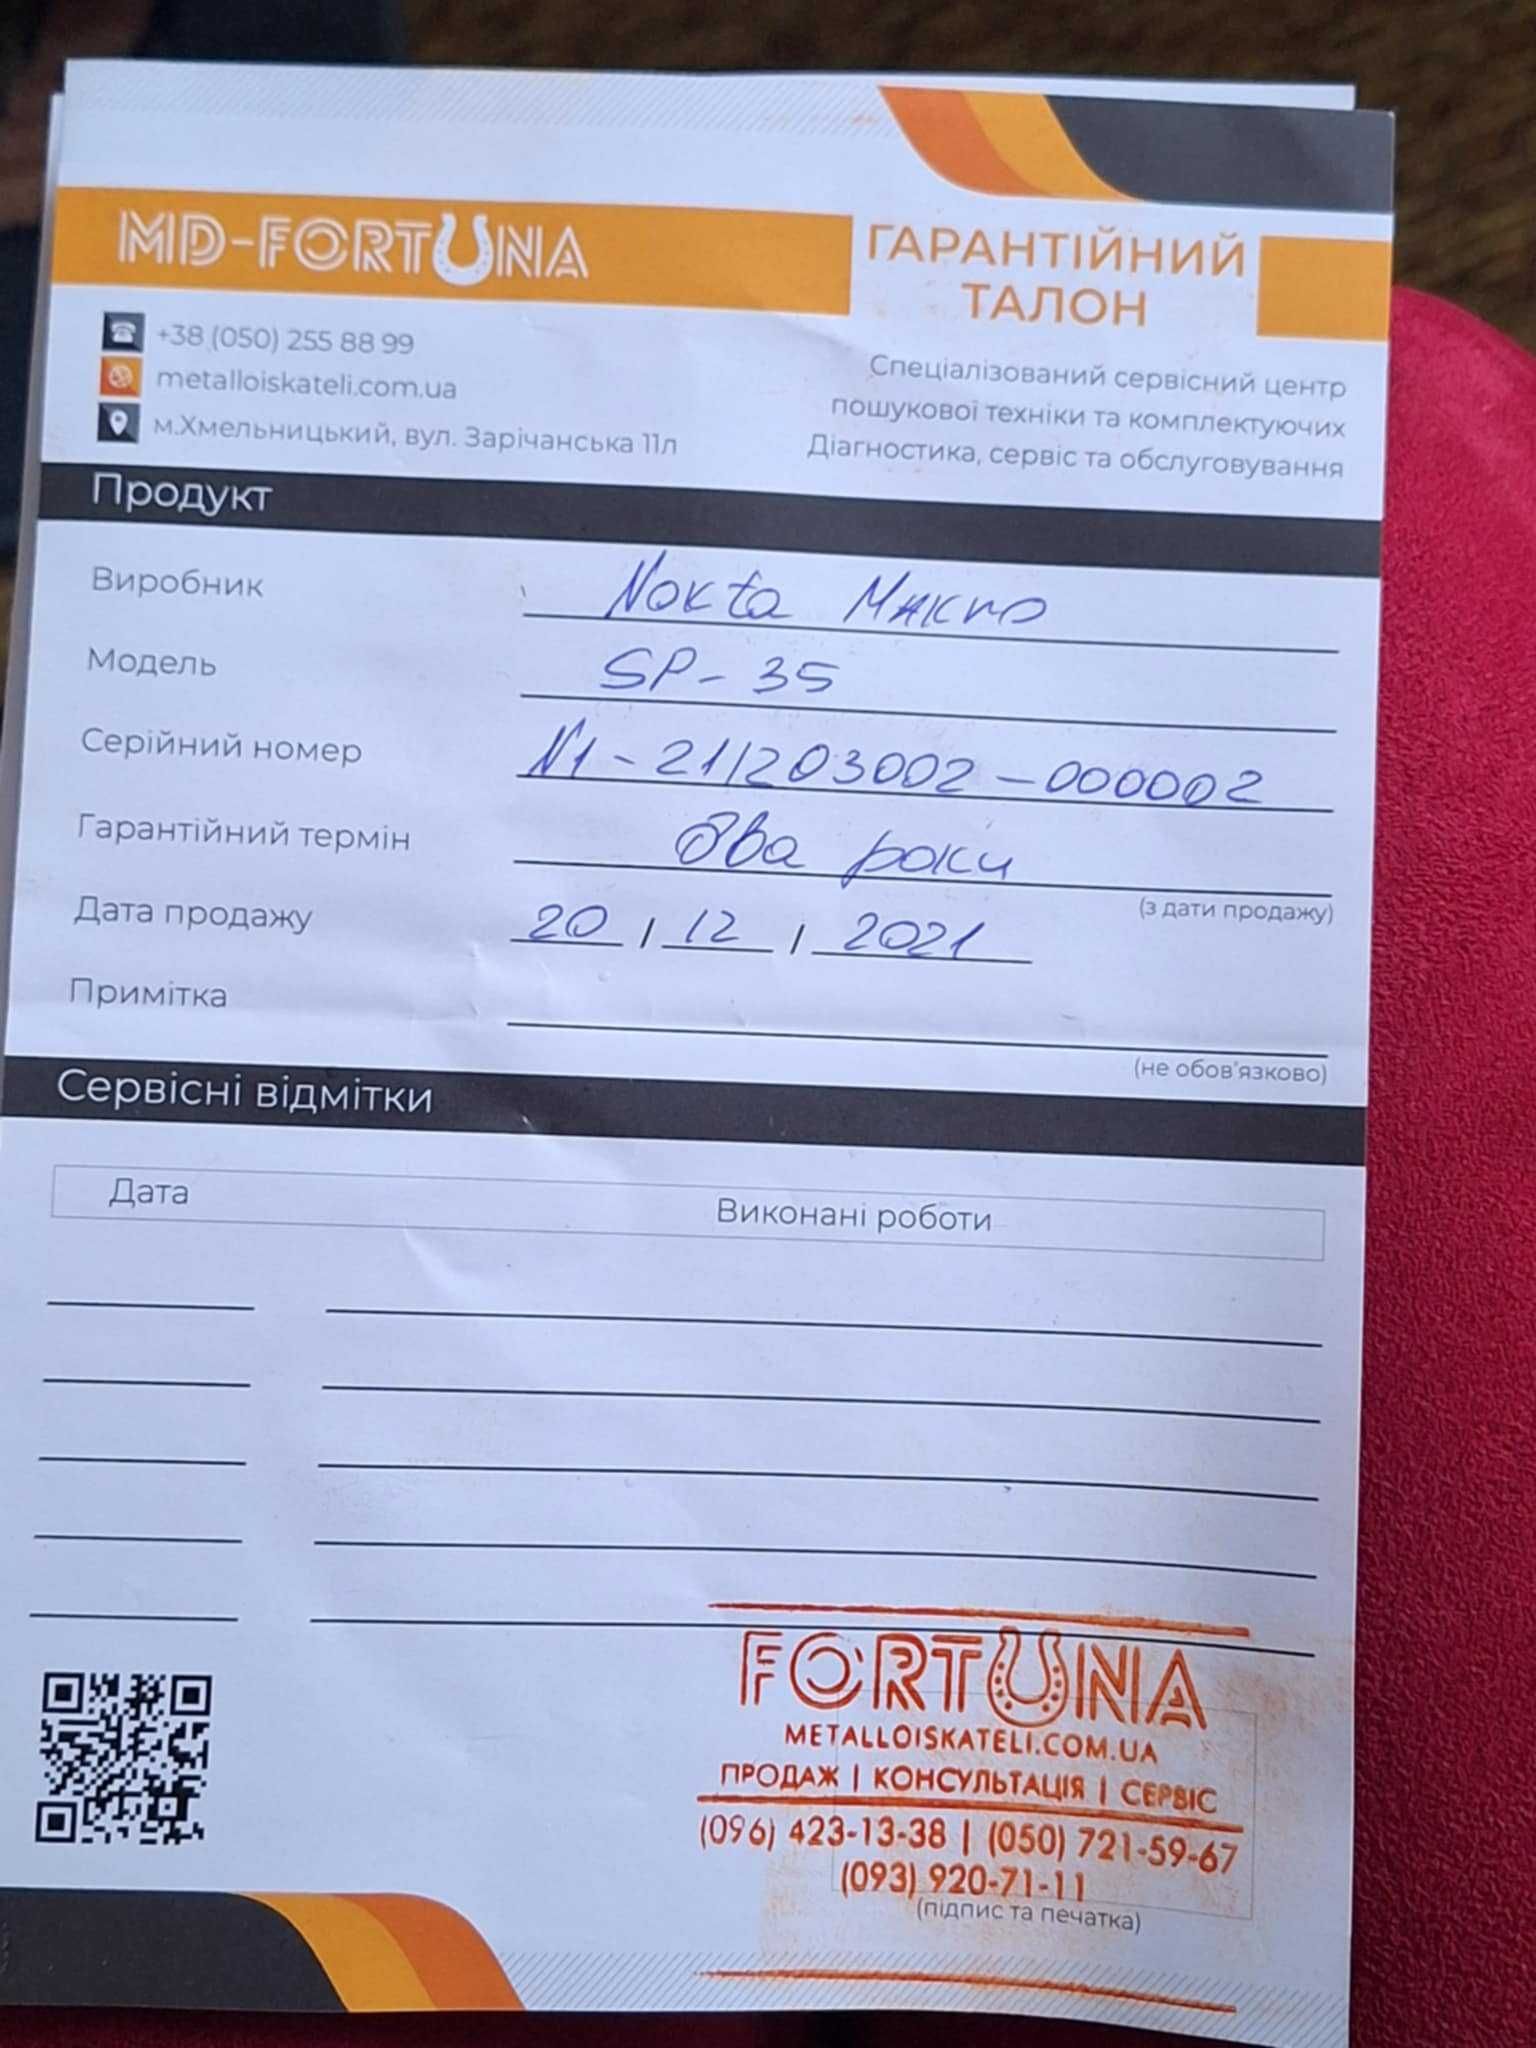 MD-FORTUNA
ГАРАНТІЙНИЙ
ТАЛОН
+38 (050) 255 88 99
metalloiskateli.com.ua
м.Хмельницький, вул. Зарічанська 11л
Спеціалізований сервісний центр
пошукової техніки та комплектуючих
Діагностика, сервіс та обслуговування
Продукт
Виробник Nokta Makro
Модель SP-35
Серійний номер N1-211203002-000002
Гарантійний термін два роки
(з дати продажу)
Дата продажу 20 / 12 / 2021
Примітка
(не обов'язково)
Сервісні відмітки
Дата Виконані роботи
FORTUNA
METALLOISKATELI.COM.UA
ПРОДАЖ | КОНСУЛЬТАЦІЯ | СЕРВІС
(096) 423-13-38 | (050) 721-59-67
(093) 920-71-11
(підпис та печатка)